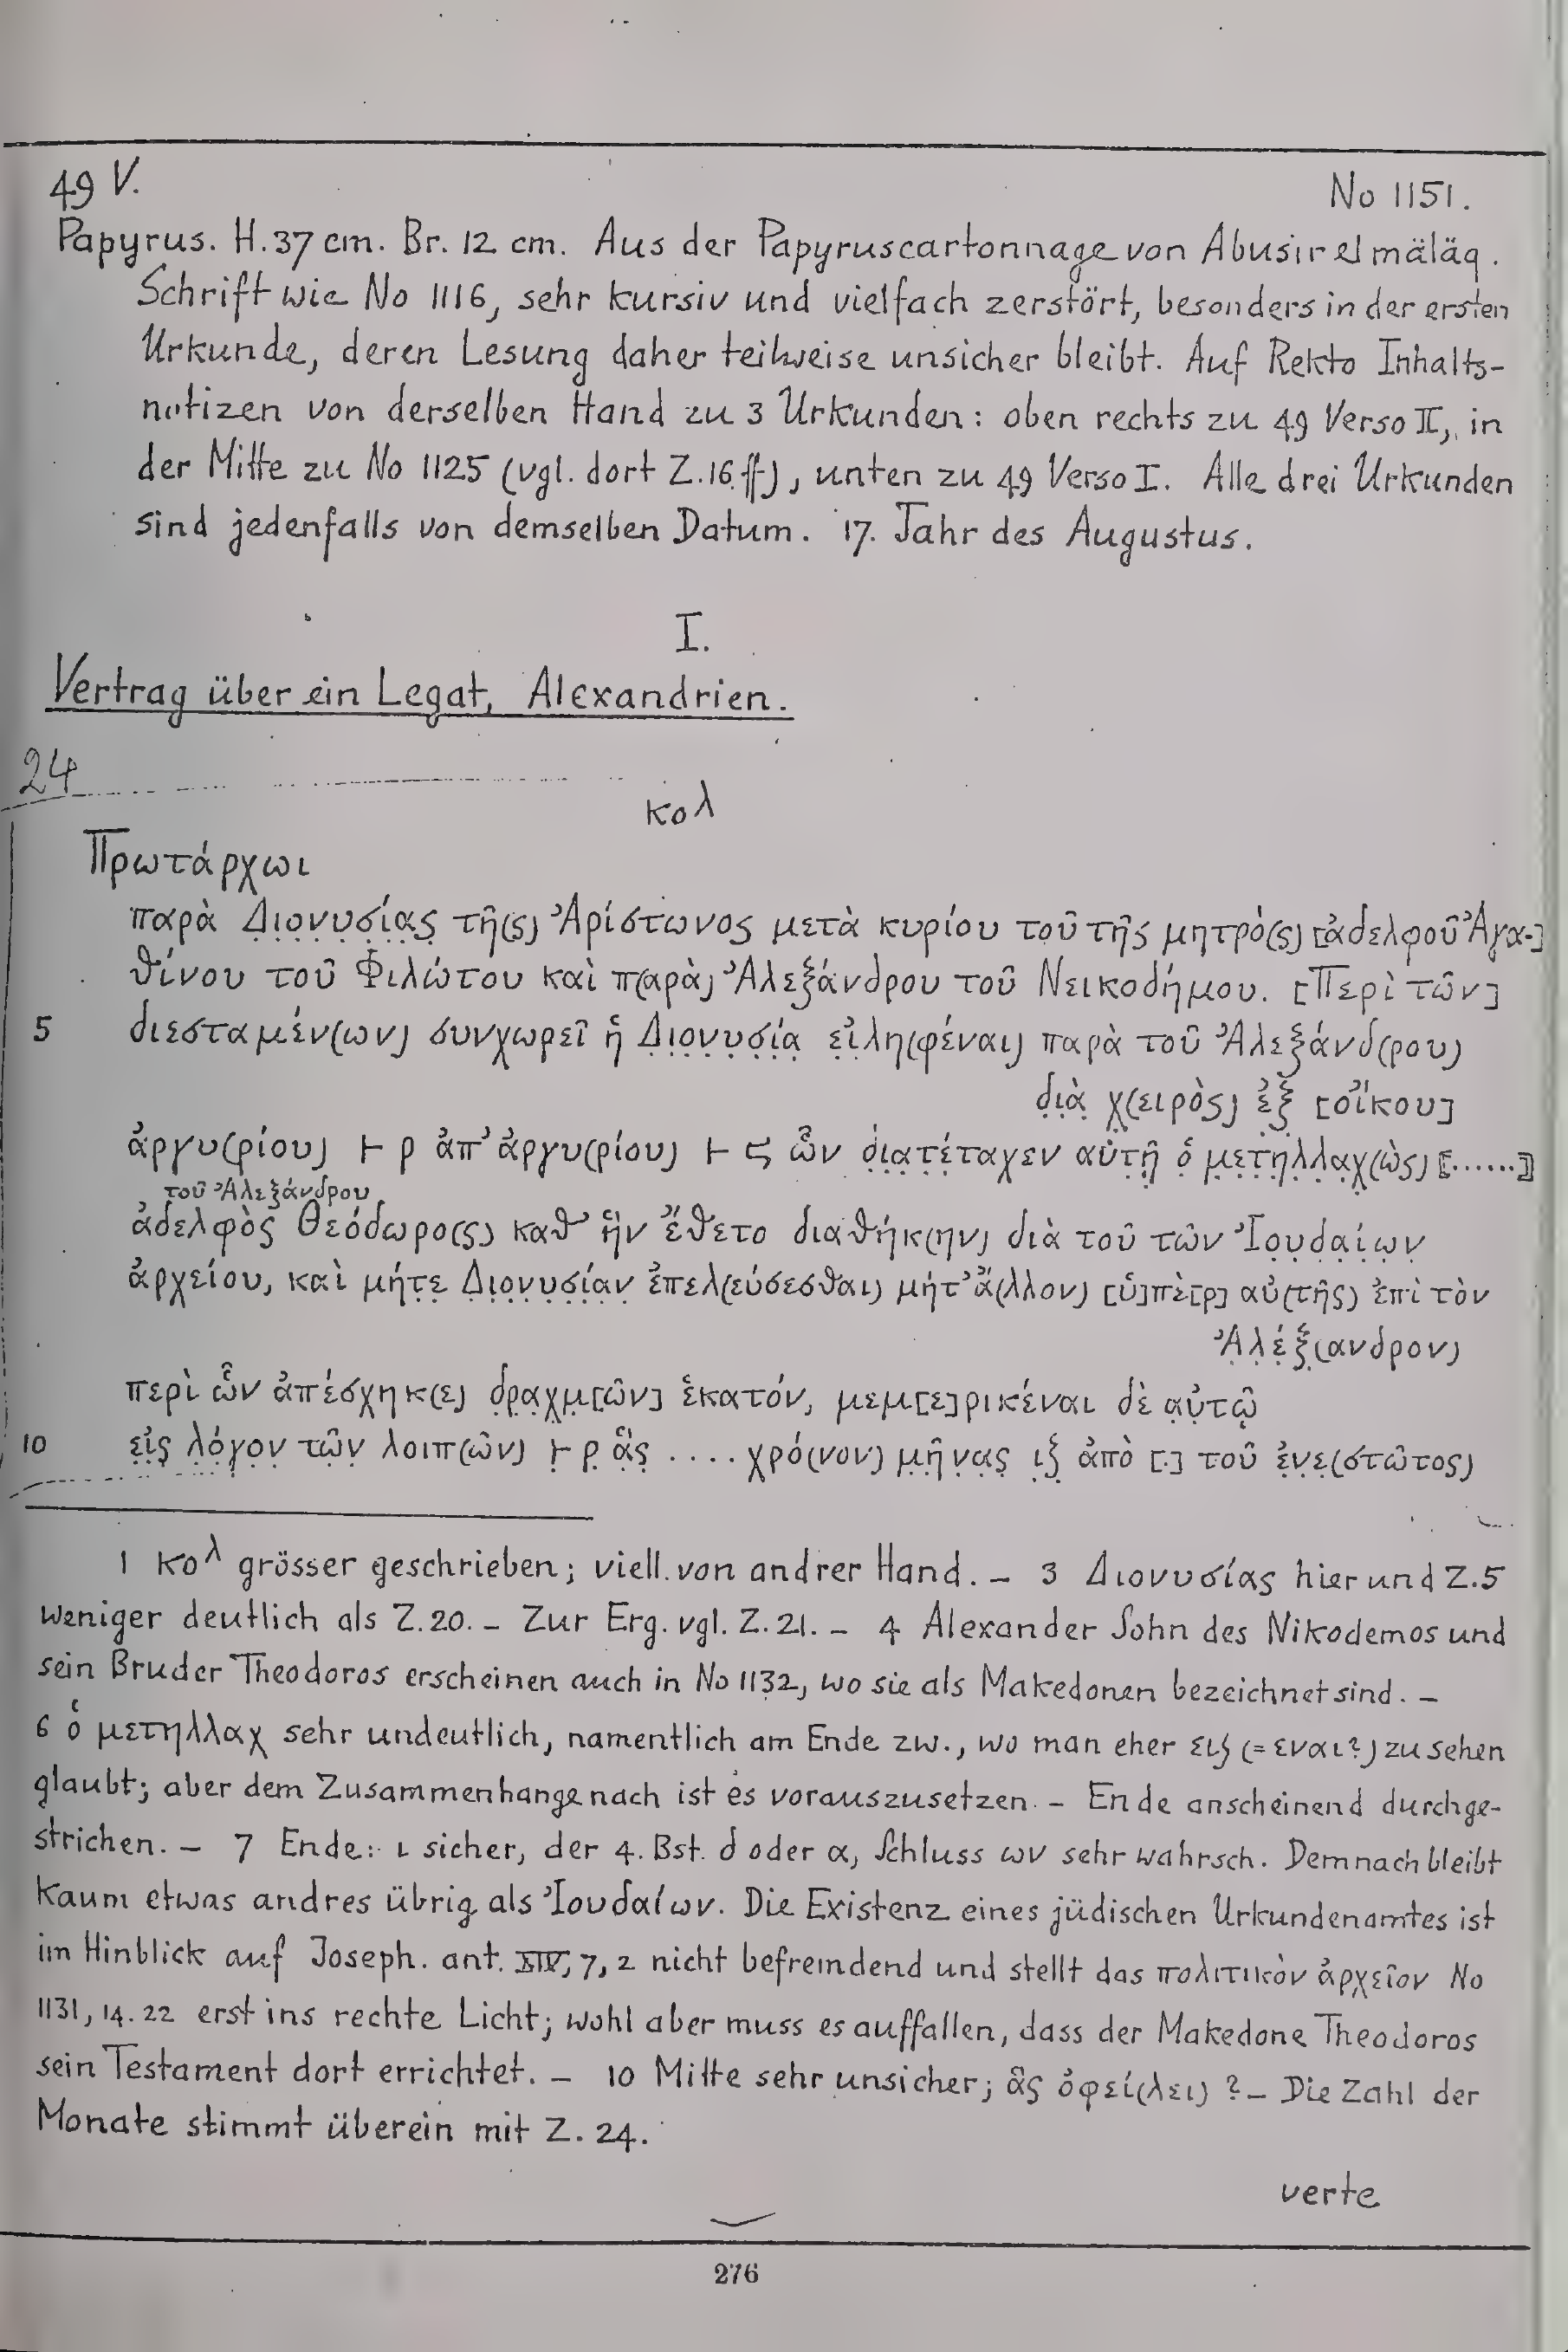 49 V. No 1151.
Papyrus. H. 37 cm. Br. 12 cm. Aus der Papyruscartonnage von Abusir el mäläq.
Schrift wie No 1116, sehr kursiv und vielfach zerstört, besonders in der ersten
Urkunde, deren Lesung daher teilweise unsicher bleibt. Auf Rekto Inhalts-
notizen von derselben Hand zu 3 Urkunden: oben rechts zu 49 Verso II, in
der Mitte zu No 1125 (vgl. dort Z. 16 ff), unten zu 49 Verso I. Alle drei Urkunden
sind jedenfalls von demselben Datum. 17. Jahr des Augustus.
I.
Vertrag über ein Legat, Alexandrien.
24
κολ
Πρωτάρχωι
παρὰ Δ̣ι̣ο̣ν̣υ̣σ̣ί̣α̣ς̣ τῆ(ς) Ἀρίστωνος μετὰ κυρίου το̣ῦ τῆς μητρό(ς) [ἀδελφοῦ Ἀγα-]
θίνου τοῦ Φιλώτου καὶ π(αρὰ) Ἀλεξάνδρου τοῦ Νεικοδήμου. [Περὶ τῶν]
5 διεσταμέν(ων) συνχωρεῖ ἡ Δ̣ι̣ο̣ν̣υ̣σ̣ί̣α̣ ε̣ἰ̣λη(φέναι) παρὰ τοῦ Ἀλεξάνδ(ρου)
δ̣ι̣ὰ̣ χ̣(ειρὸς) ἐ̣ξ̣ [οἴκου]
ἀργυ(ρίου) 𐅂 ρ ἀπ’ ἀργυ(ρίου) 𐅂 ϛ ὧν δ̣ι̣α̣τ̣έ̣ταχεν α̣ὐ̣τ̣ῇ̣ ὁ μ̣ε̣τ̣η̣λ̣λ̣α̣χ̣(ὼς) ⟦......⟧
τοῦ Ἀλεξάνδρου
ἀδελφὸς Θεόδωρο(ς) καθ’ ἣν ἔθετο διαθήκ(ην) διὰ τοῦ τῶν Ἰ̣ο̣υ̣δ̣α̣ί̣ω̣ν̣
ἀρχείου, καὶ μήτ̣ε̣ Δ̣ι̣ο̣ν̣υ̣σ̣ί̣α̣ν̣ ἐπελ(εύσεσθαι) μήτ’ ἄ(λλον) [ὑ]πὲ[ρ] αὐ(τῆς) ἐπὶ τὸν
Ἀ̣λ̣έ̣ξ̣(ανδρον)
περὶ ὧν ἀπέσχηκ(ε) δ̣ρ̣α̣χ̣μ̣[ῶν] ἑκατόν, μεμ[ε]ρικέναι δὲ α̣ὐ̣τῷ̣
10 ε̣ἰ̣ς̣ λ̣ό̣γ̣ο̣ν̣ τῶν λοιπ(ῶν) 𐅂̣ ρ̣ ἃ̣ς̣ .... χρό(νον) μ̣ῆ̣ν̣α̣ς̣ ι̣ξ̣ ἀπὸ [.] τοῦ ἐ̣ν̣ε̣(στῶτος)
1 κολ grösser geschrieben; viell. von andrer Hand. – 3 Διονυσίας hier und Z. 5
weniger deutlich als Z. 20. – Zur Erg. vgl. Z. 21. – 4 Alexander Sohn des Nikodemos und
sein Bruder Theodoros erscheinen auch in No 1132, wo sie als Makedonen bezeichnet sind. –
6 ὁ μετηλλαχ sehr undeutlich, namentlich am Ende zw., wo man eher ειξ (= εναι?) zu sehen
glaubt; aber dem Zusammenhange nach ist es vorauszusetzen. – Ende anscheinend durchge-
strichen. – 7 Ende: ι sicher, der 4. Bst. δ oder α, Schluss ων sehr wahrsch. Demnach bleibt
kaum etwas andres übrig als Ἰουδαίων. Die Existenz eines jüdischen Urkundenamtes ist
im Hinblick auf Joseph. ant. XIV, 7, 2 nicht befremdend und stellt das πολιτικὸν ἀρχεῖον No
1131, 14. 22 erst ins rechte Licht; wohl aber muss es auffallen, dass der Makedone Theodoros
sein Testament dort errichtet. – 10 Mitte sehr unsicher; ἃς ὀφεί(λει) ? – Die Zahl der
Monate stimmt überein mit Z. 24.
verte
276